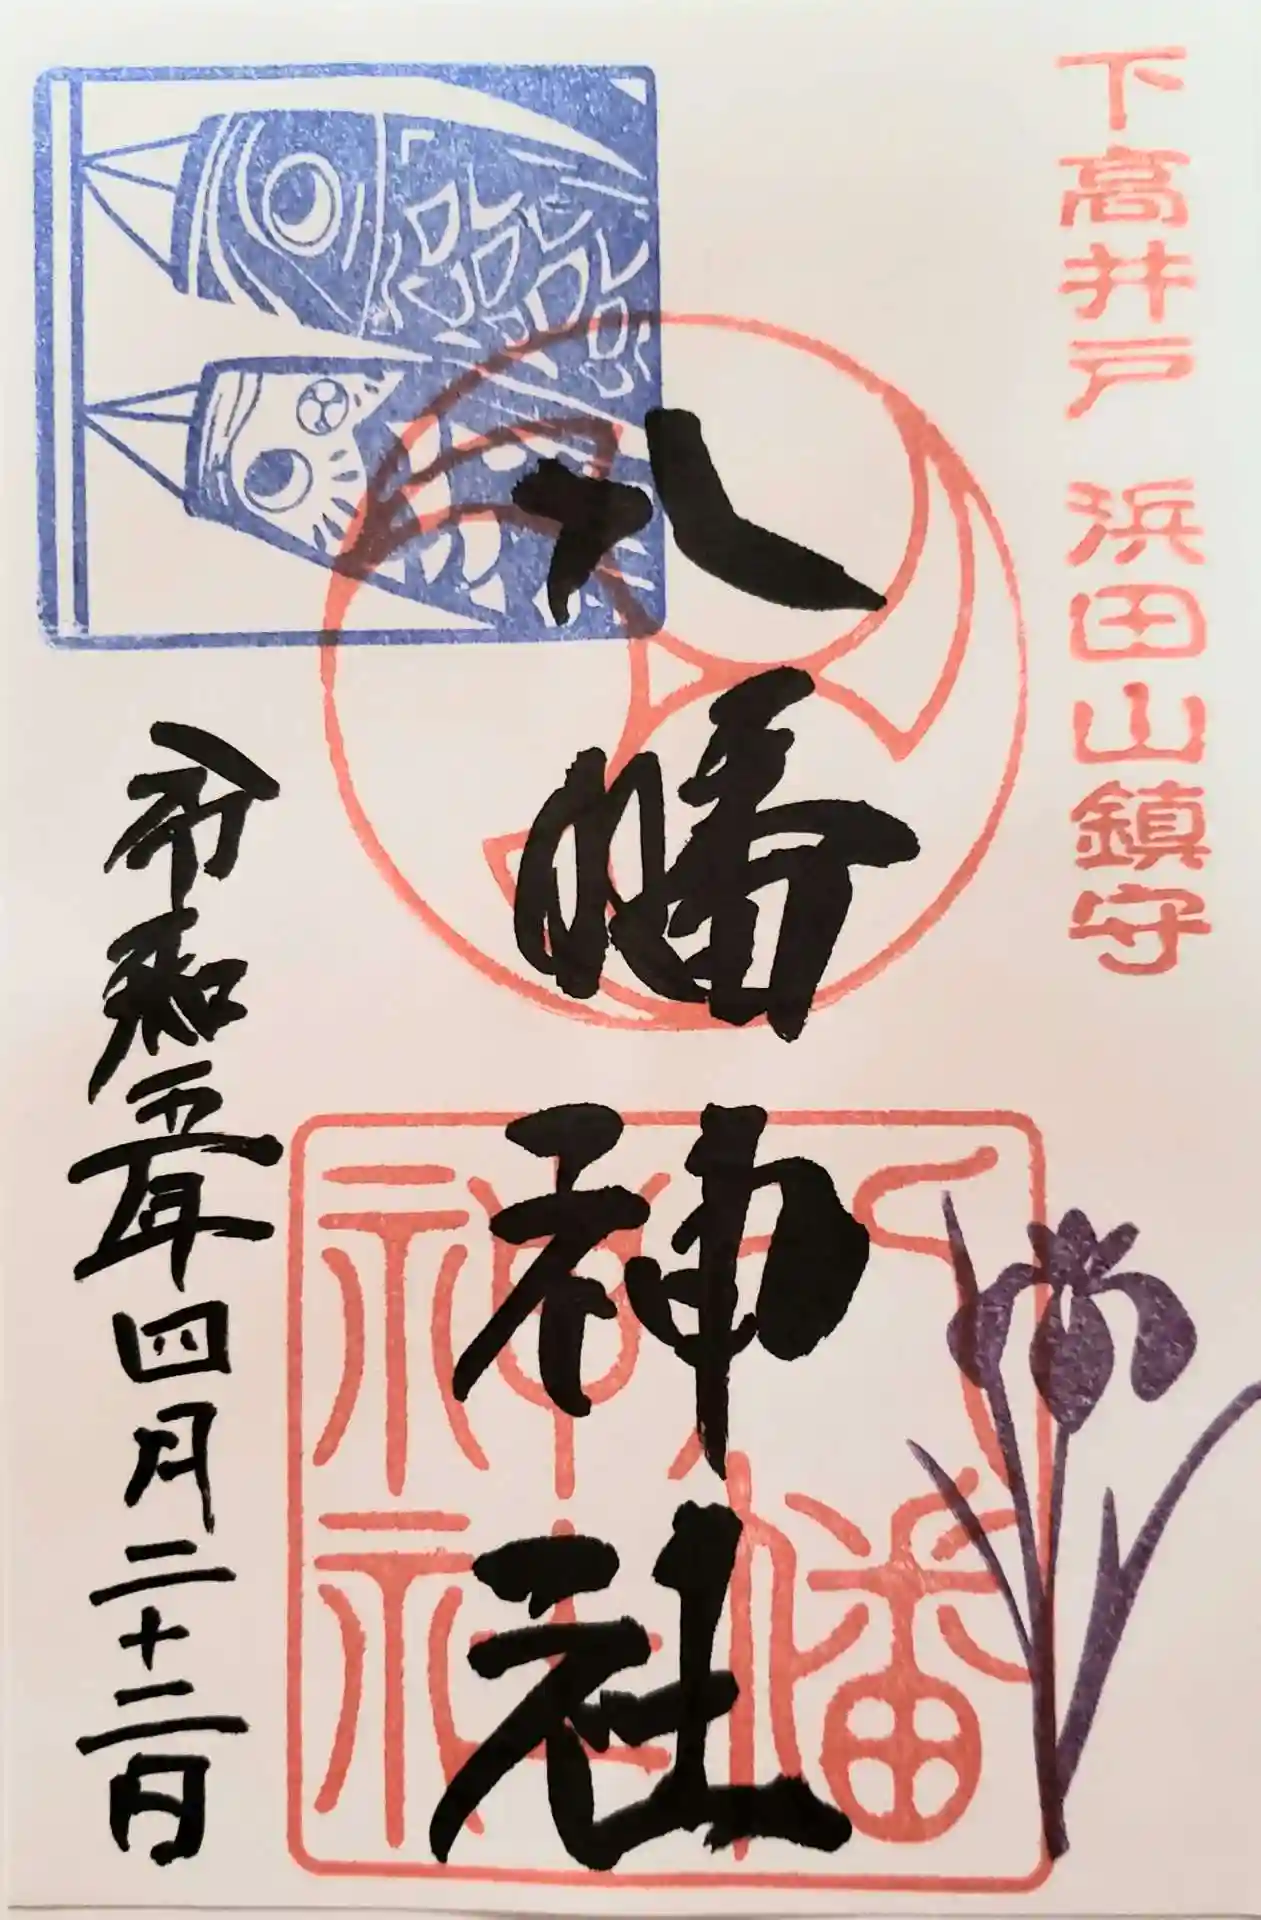 下高井戸 浜田山鎮守
八幡神社
八幡神社
令和五年四月二十二日